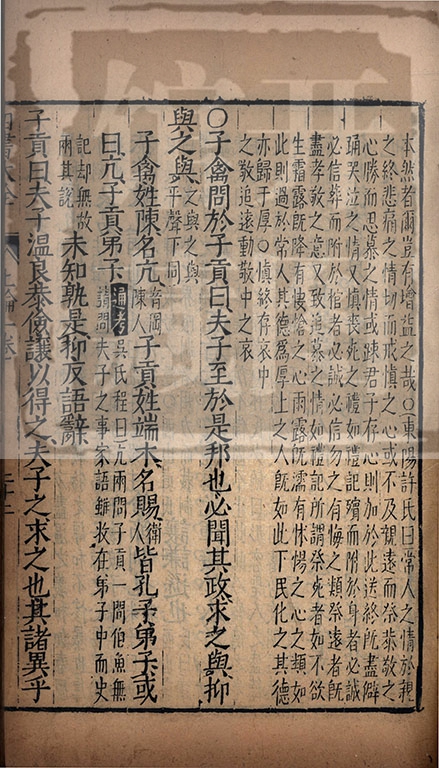 本然者爾豈有增益之哉○東陽許氏曰常人之情於親
之終悲痛之情切而戒慎之心或不及親遠而祭恭敬之
心勝而思慕之情或疎君子存心則加於此送終既盡擗
踊哭泣之情又慎喪死之禮如禮記殯而附於身者必誠
必信葬而附於棺者必誠必信勿之有悔之類祭遠者既
盡孝敬之意又致追慕之情如禮記所謂祭死者如不欲
生霜露既降有悽愴之心雨露既濡有怵惕之心之類如
此則過於常人其德爲厚上之人既如此下民化之其德
亦歸于厚○慎終存哀中
之敬追遠動敬中之哀
○子禽問於子貢曰夫子至於是邦也必聞其政求之與抑
與之與之與之與平聲下同
子禽姓陳名亢音岡陳人子貢姓端木名賜衛人皆孔子弟子或
曰亢子貢弟子通考吳氏程曰亢兩問子貢一問伯魚無
請問夫子之事家語雖收在弟子中而史
記却無故
兩其說未知孰是抑反語辭
子貢曰夫子溫良恭儉讓以得之夫子之求之也其諸異乎